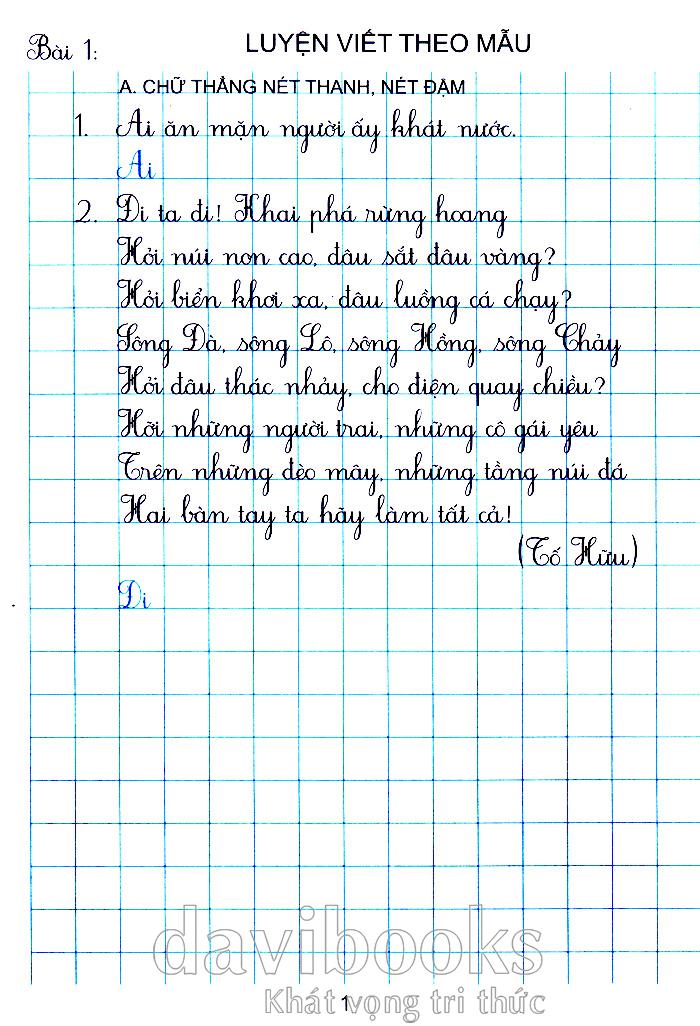 Bài 1:
LUYỆN VIẾT THEO MẪU
A. CHỮ THẲNG NÉT THANH, NÉT ĐẬM
1. Ai ăn mặn người ấy khát nước.
Ai
2. Đi ta đi! Khai phá rừng hoang
Hỏi núi non cao, đâu sắt đâu vàng?
Hỏi biển khơi xa, đâu luồng cá chạy?
Sông Đà, sông Lô, sông Hồng, sông Chảy
Hỏi đâu thác nhảy, cho điện quay chiều?
Hỡi những người trai, những cô gái yêu
Trên những đèo mây, những tầng núi đá
Hai bàn tay ta hãy làm tất cả!
(Tố Hữu)
Đi
davibooks
Khát vọng tri thức
1